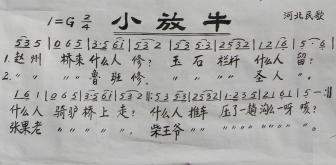 1=G 2/4 小放牛 河北民歌
5̇35 | 065 | 3·5 6i | 53 2 | 53·5 | 53·23 | 25 32 | 121 6 | 5 - |
1. 赵州 桥来什么人 修? 玉石 栏杆 什么人 留?
2. 〃 〃 〃 鲁班修. 〃 〃 〃 〃 圣人 〃.
1 61 | 065 | 3·5 61 | 53 2 :| 53·5 | 53·23 | 25 32 | 1·2 35 | 2161 | 5 - |
什么人 骑驴 桥上走? 什么人 推车 压了一趟沟么一呀 咳?
张果老 〃 〃 〃 〃 〃. 柴王爷 〃 〃 〃 〃 〃 〃 〃 〃